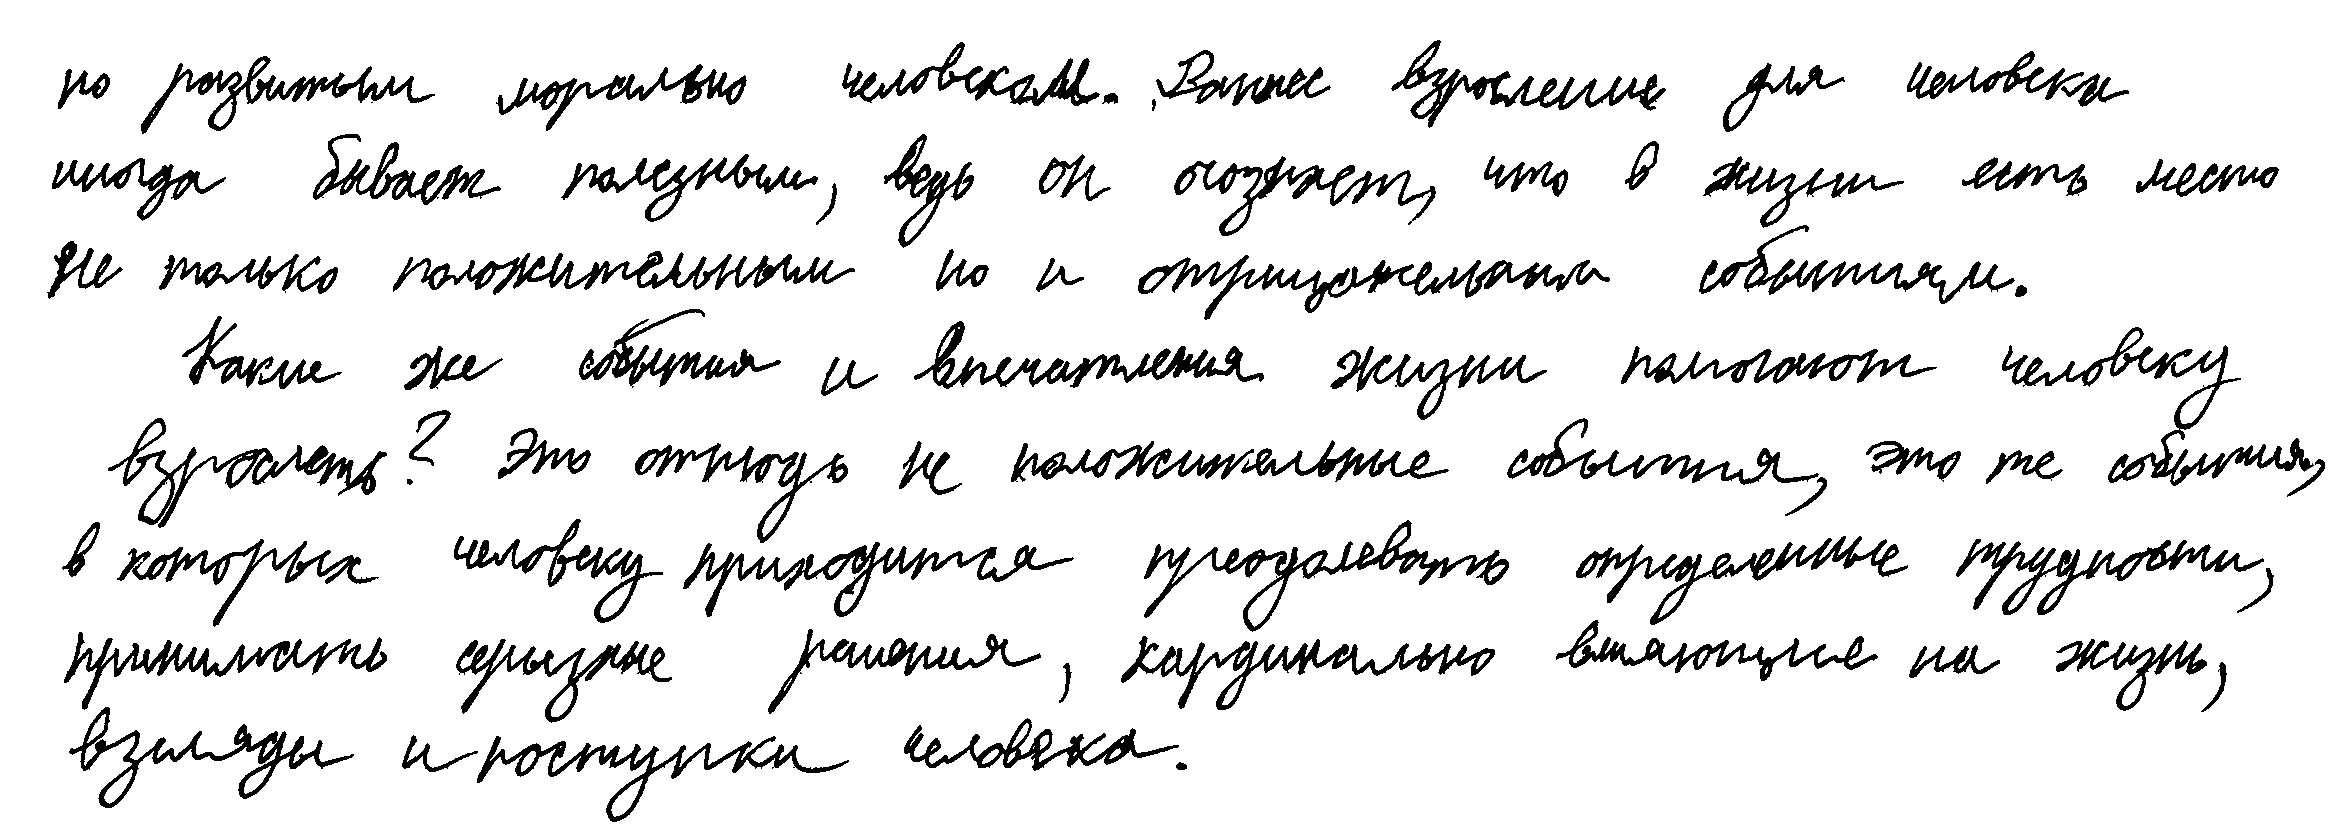 но развитым морально человеком. Раннее взросление для человека
иногда бывает полезным, ведь он осознает, что в жизни есть место
не только положительным но и отрицательным событиям.
Какие же события и впечатления жизни помогают человеку
взрослеть? Это отнюдь не положительные события, это те события,
в которых человеку приходится преодолевать определенные трудности,
принимать серьезные решения, кардинально влияющие на жизнь,
взгляды и поступки человека.